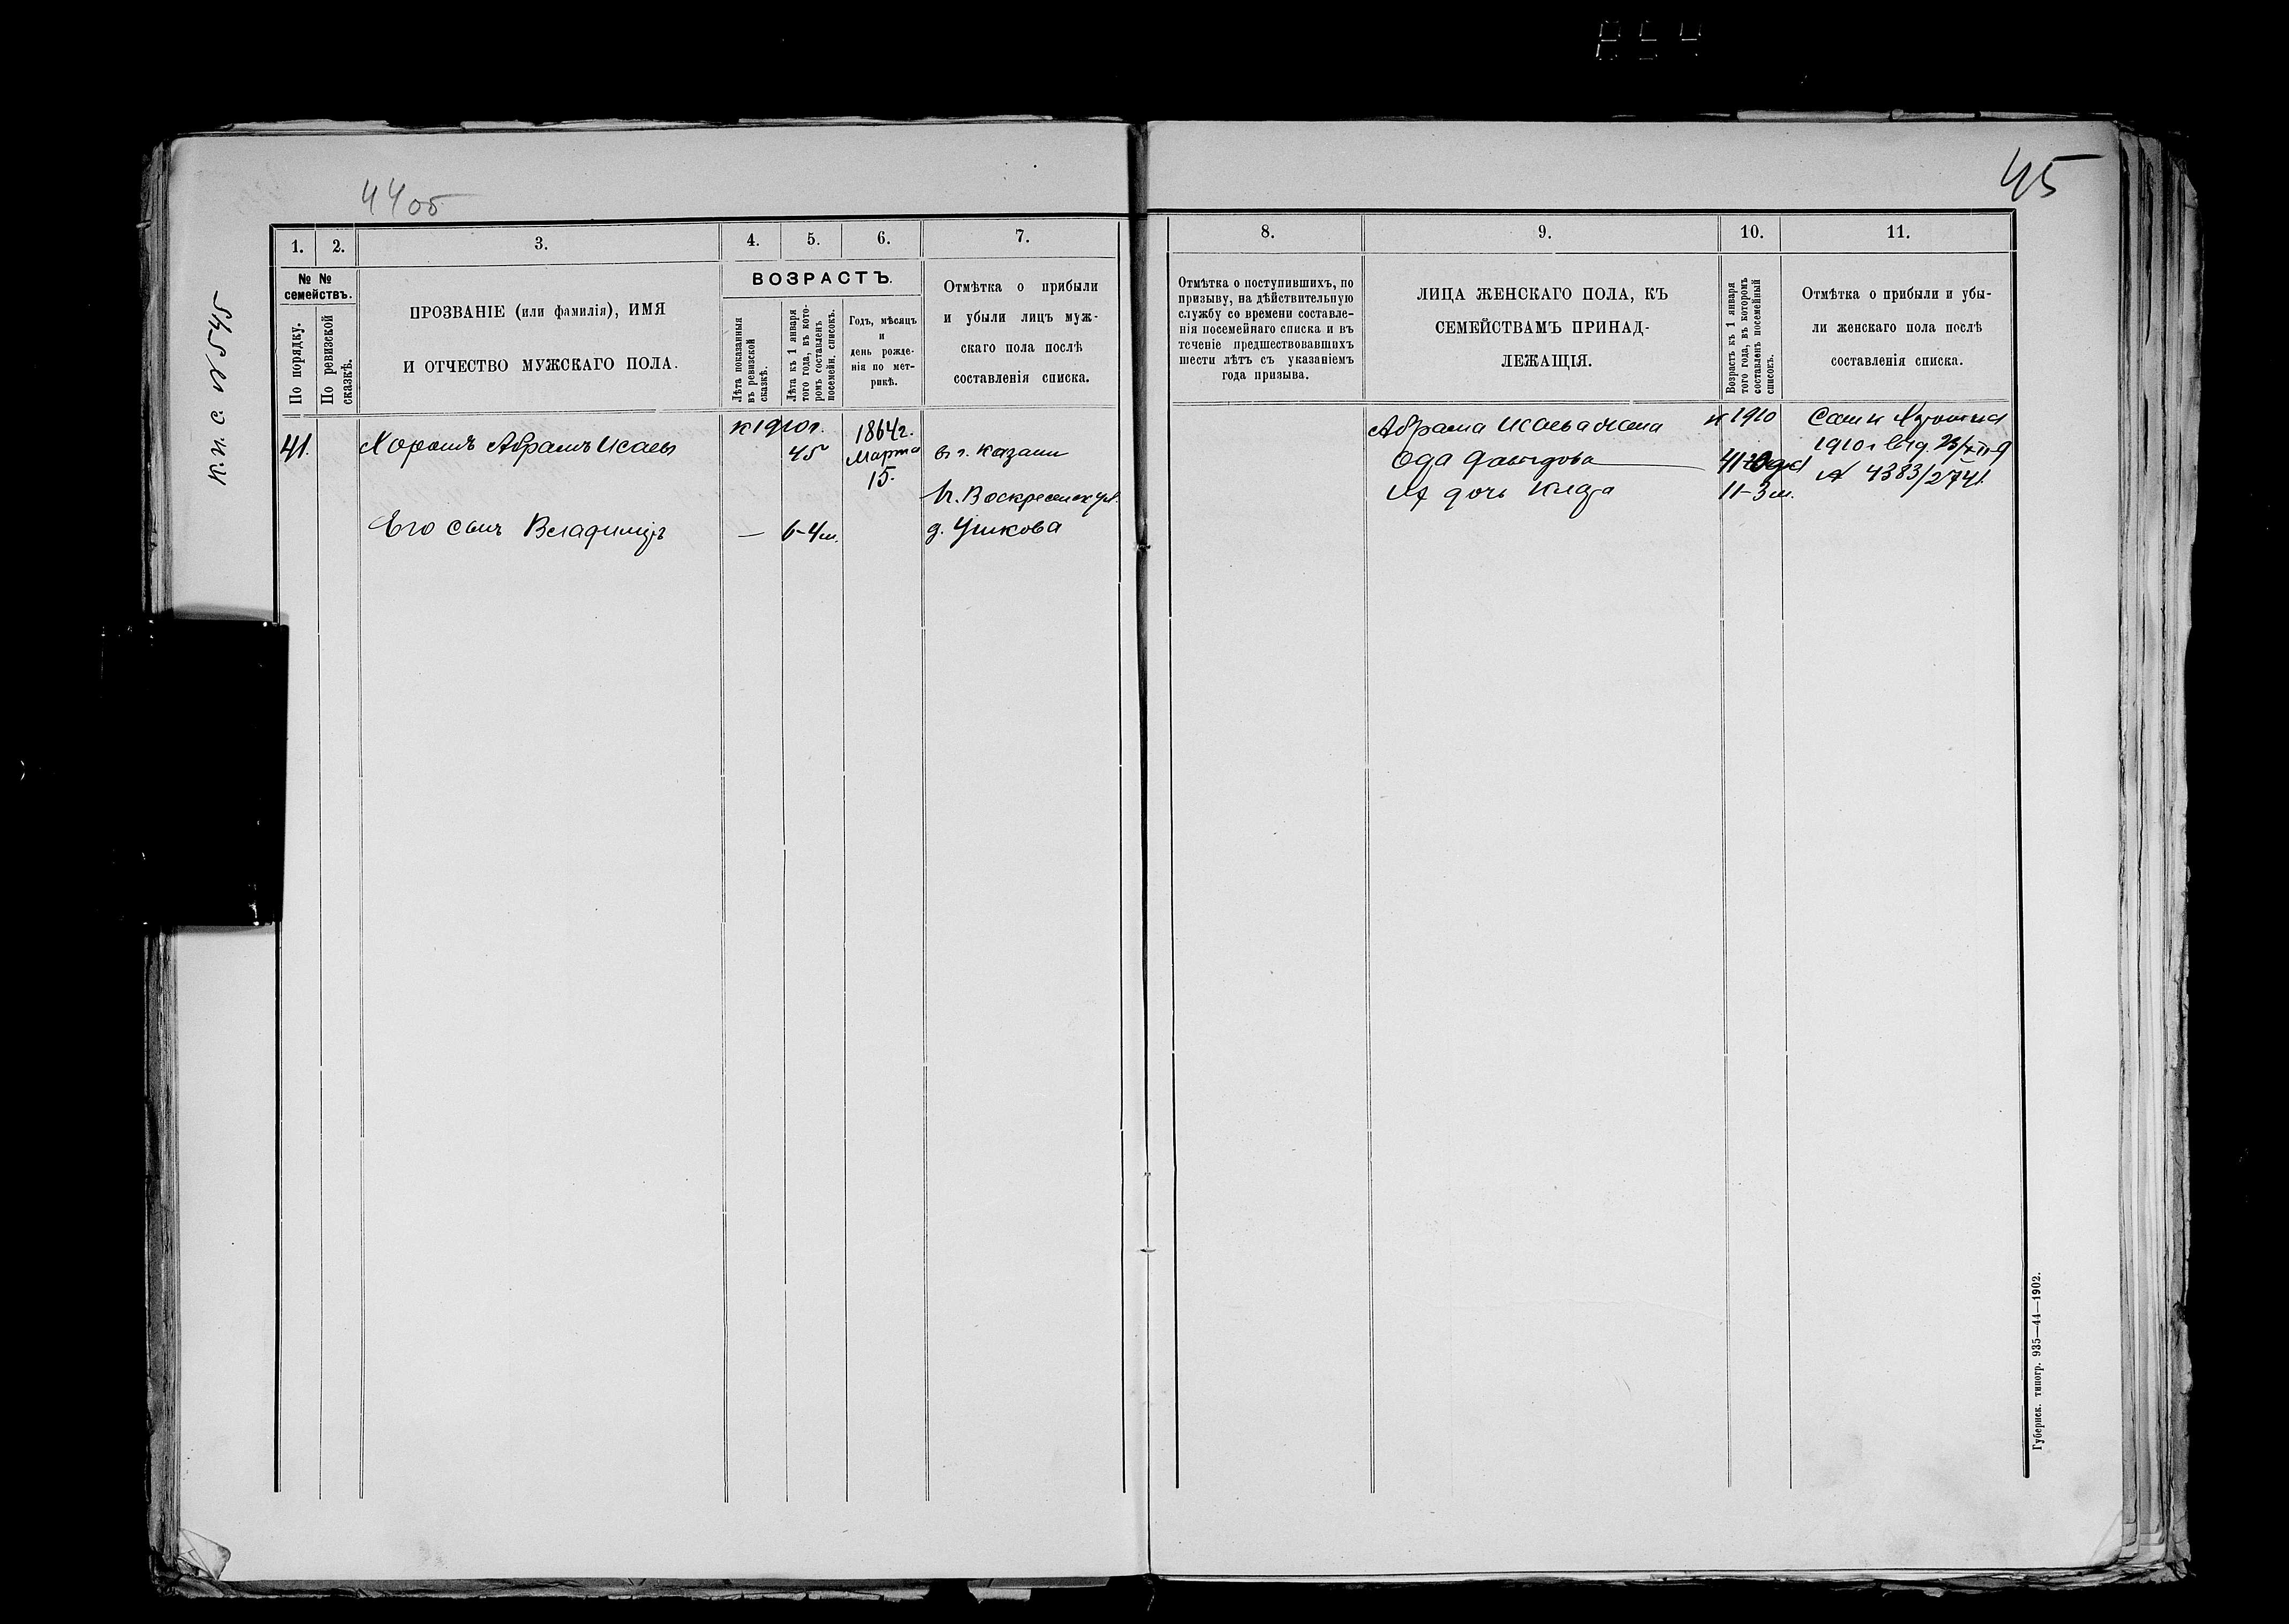 44об
45
К. п. с. № 545
1. 2. 3. 4. 5. 6. 7.
№ №
семействъ.
По порядку.
По ревизской
сказкѣ.
ПРОЗВАНІЕ (или фамилія), ИМЯ
И ОТЧЕСТВО МУЖСКАГО ПОЛА.
ВОЗРАСТЪ.
Лѣта показанныя
въ ревизской
сказкѣ.
Лѣта къ 1 января
того года, въ кото-
ромъ составленъ
посемейн. списокъ.
Годъ, мѣсяцъ
и
день рожде-
нія по мет-
рикѣ.
Отмѣтка о прибыли
и убыли лицъ муж-
скаго пола послѣ
составленія списка.
к 1910 г.
41. Хорошъ Абрамъ Исаевъ 45
1864 г.
Марта
15.
в г. Казани
Воскресенск
Его сынъ Владиміръ — 6-4 м. д. Ушкова
8. 9. 10. 11.
Отмѣтка о поступившихъ, по
призыву, на дѣйствительную
службу со времени составле-
нія посемейнаго списка и въ
теченіе предшествовавшихъ
шести лѣтъ съ указаніемъ
года призыва.
ЛИЦА ЖЕНСКАГО ПОЛА, КЪ
СЕМЕЙСТВАМЪ ПРИНАД-
ЛЕЖАЩІЯ.
Возрастъ къ 1 января
того года, въ которомъ
составленъ посемейный
списокъ.
Отмѣтка о прибыли и убы-
ли женскаго пола послѣ
составленія списка.
Абрама Исаева жена к 1910
Ода Давыдова 41
Их дочь Клара 11-3 м.
1910 г
№ 4383/2741
Губернск. типогр. 935—44—1902.